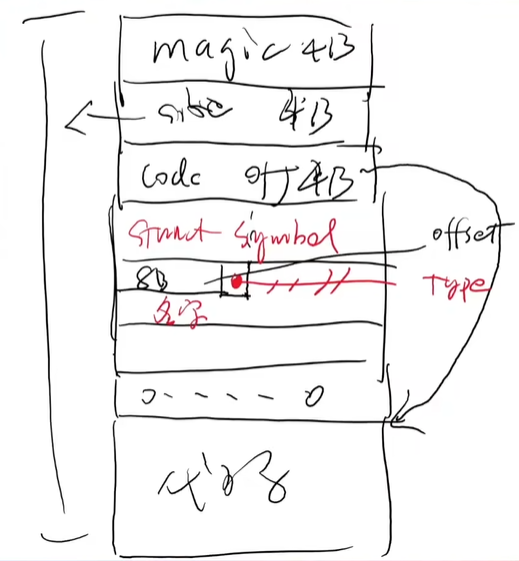 magic 4B
size 4B
code off 4B
struct symbol
offset
8B
Type
名字
0 - - - - 0
代码